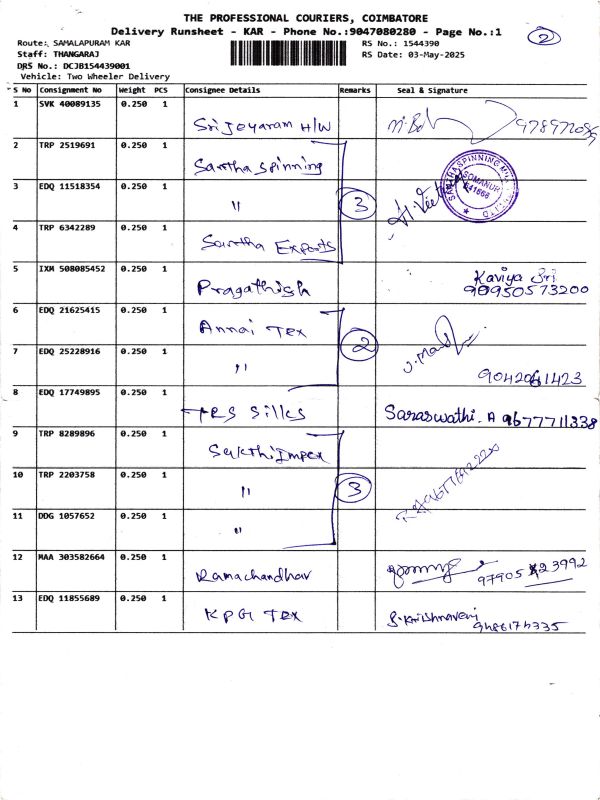 THE PROFESSIONAL COURIERS, COIMBATORE
Delivery Runsheet - KAR - Phone No.:9047080280 - Page No.:1
2
Route: SAMALAPURAM KAR
RS No.: 1544390
Staff: THANGARAJ
RS Date: 03-May-2025
DRS No.: DCJB154439001
Vehicle: Two Wheeler Delivery
S No Consignment No Weight PCS Consignee Details Remarks Seal & Signature
1 SVK 40089135 0.250 1
Sri Jeyaram H/W
2 TRP 2519691 0.250 1
Sartha Spinning
3 EDQ 11518354 0.250 1
" 3
SOMANUR
641668
4 TRP 6342289 0.250 1
Sartha Exports
5 IXM 508085452 0.250 1
Pragathish Kaviya Sri
90950573200
6 EDQ 21625415 0.250 1
Annai Tex
7 EDQ 25228916 0.250 1
" 2
8 EDQ 17749895 0.250 1
TRS Silks Saraswathi. A 9677711338
9 TRP 8289896 0.250 1
Sakthi Impex
10 TRP 2203758 0.250 1
" 3
11 DDG 1057652 0.250 1
"
12 MAA 303582664 0.250 1
Ramachandhar
13 EDQ 11855689 0.250 1
KPG Tex S. Krishnaveni